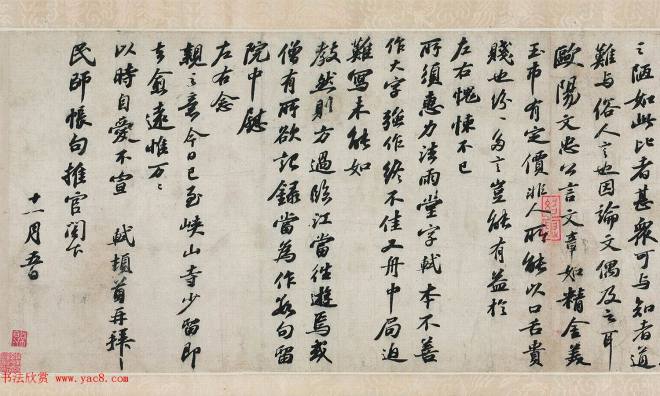 之陋如此比者甚衆可与知者道
難与俗人言也因論文偶及之耳
歐陽文忠公言文章如精金美
玉市有定價非人所能以口舌貴
賤也紛〻多言豈能有益於
左右愧悚不已
所須惠力法雨堂字軾本不善
作大字強作終不佳又舟中局迫
難寫未能如
教然則方過臨江當往遊焉或
僧有所欲記錄當為作數句留
院中慰
左右念
親之意今日已至峽山寺少留即
去愈遠惟万〻
以時自愛不宣 軾頓首再拜
民師帳句推官閣下
十一月五日
书法欣赏 www.yac8.com